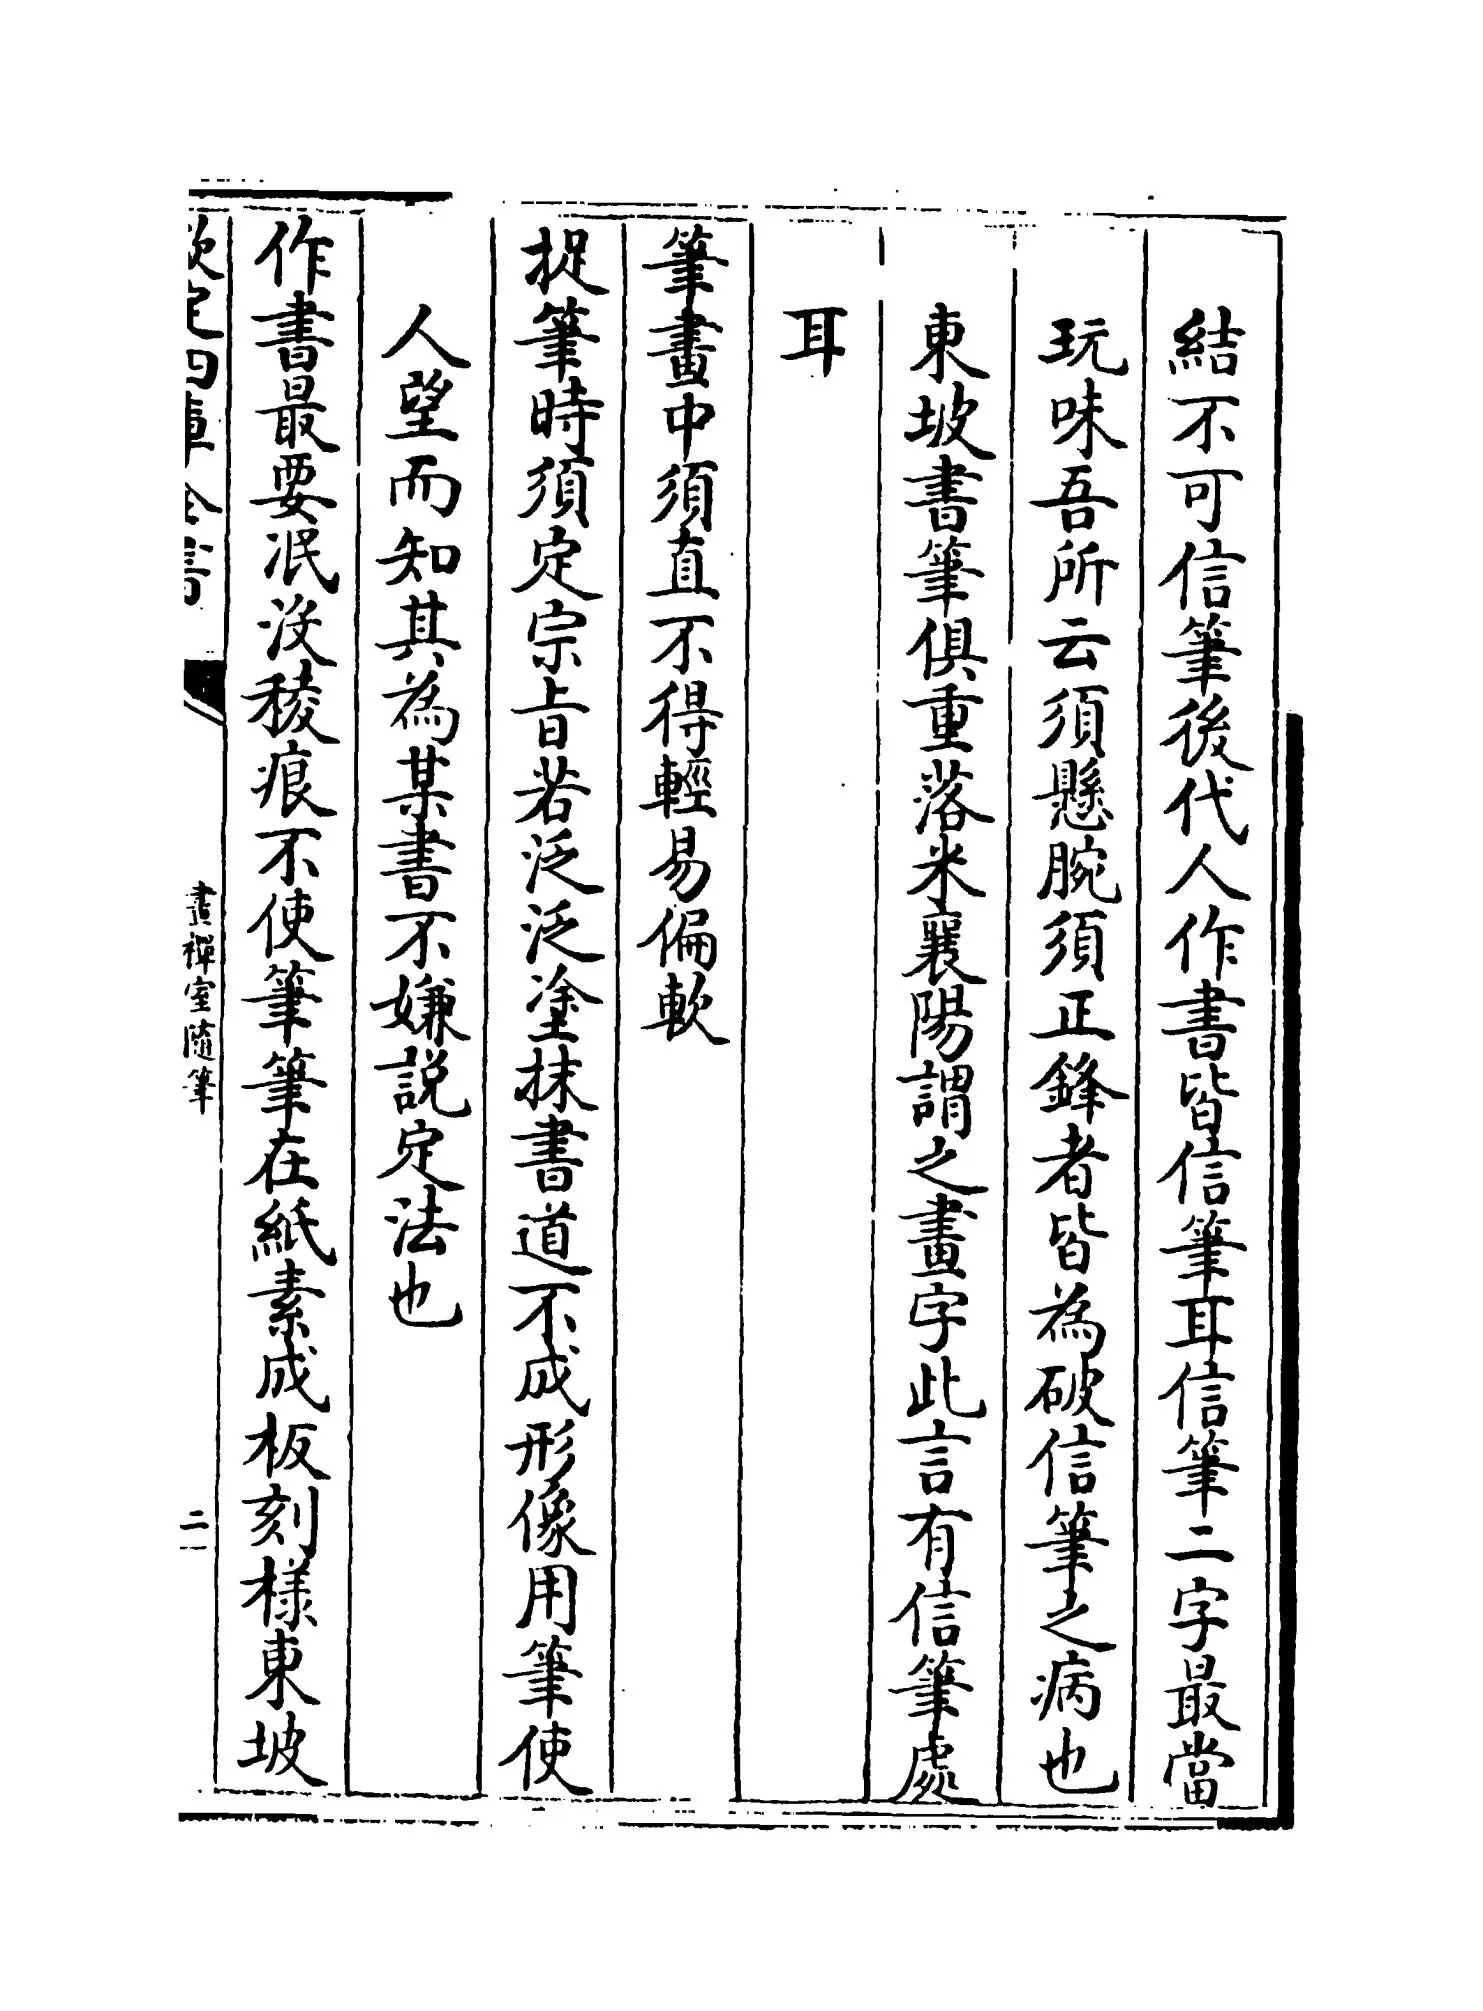 結不可信筆後代人作書皆信筆耳信筆二字最當
玩味吾所云須懸腕須正鋒者皆為破信筆之病也
東坡書筆俱重落米襄陽謂之畫字此言有信筆處
耳
筆畫中須直不得輕易偏軟
捉筆時須定宗旨若泛泛塗抹書道不成形像用筆使
人望而知其為某書不嫌説定法也
作書最要泯没稜痕不使筆筆在紙素成板刻様東坡
欽定四庫全書
畫禪室隨筆
二